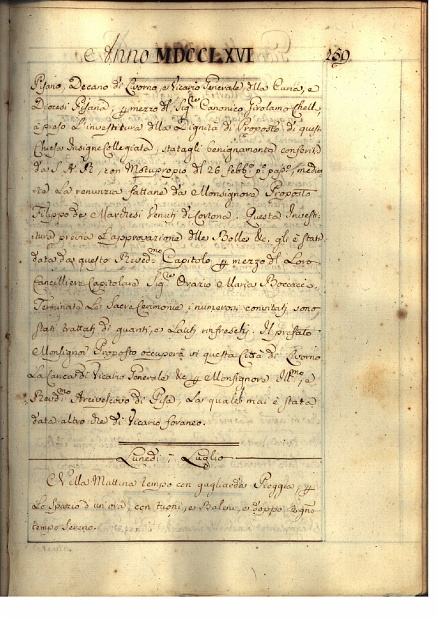 Anno MDCCLXVI 259
Pisano, Decano di Livorno, e Vicario Generale della Curia, e
Diocesi Pisana, p mezzo del Sig.re Canonico Girolamo
à preso l'investitura della Dignità di Proposto di questa
Chiesa Insigne Collegiata, statagli benignamente conferita
da S. A. R. con Motuproprio del 26 febb.o p.o pap.o, median
te La renunzia fattane da Monsignore Proposto
Filippo de Marchesi Venuti di Cortona. Questa Investi
tura previa L'approvazione delle Bolle &c. gli è stata
data da questo Rev.do Capitolo p mezzo del Loro
Cancelliere Capitolare Sig.re Orazio Maria
Terminate Le Sacre Cerimonie i numerosi convitati sono
stati trattati di guanti, e Lauti rinfreschi. Il prefato
Monsignor Proposto occuperà in questa Città di Livorno
La Carica di Vicario Generale &c p Monsignore Ill.mo, e
Rev.mo Arcivescovo di Pisa, La quale mai è stata
data altro che di Vicario foraneo.
Lunedì 7 Luglio
Nella Mattina tempo con gagliarda Pioggia, p
Lo Spazio d'un ora, con tuoni, e Baleni, e doppo
tempo Sereno.